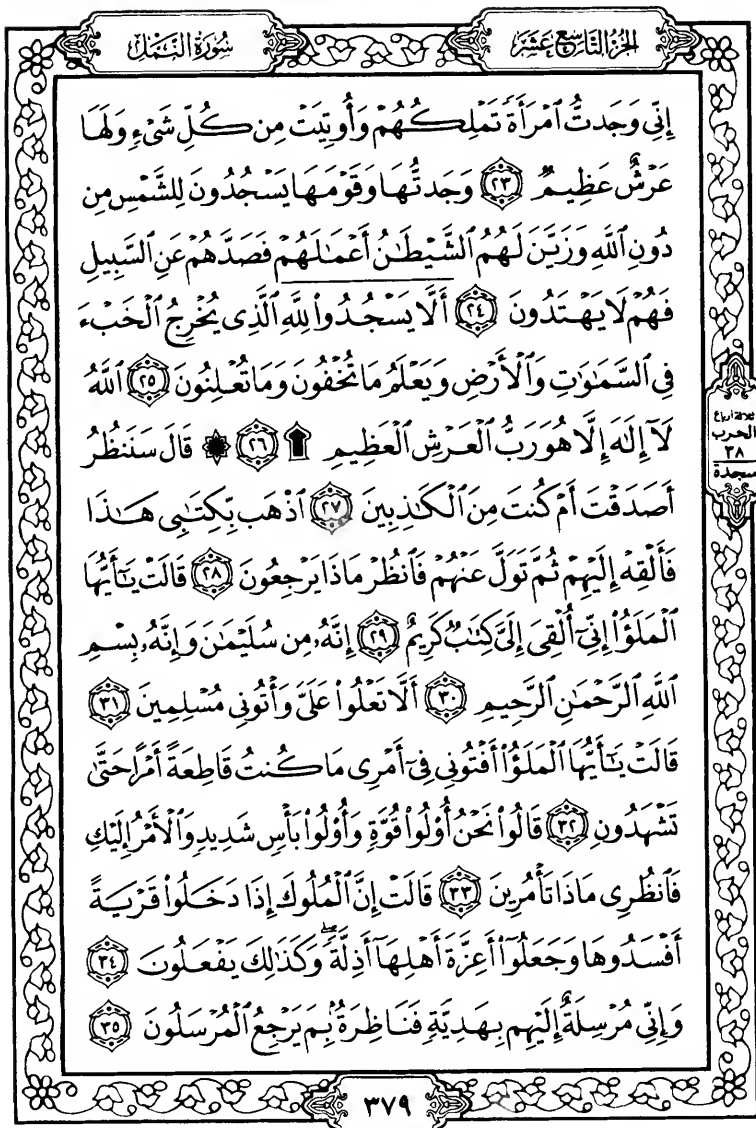 الجزء التاسع عشر
سورة النمل
إِنِّى وَجَدتُّ ٱمْرَأَةً تَمْلِكُهُمْ وَأُوتِيَتْ مِن كُلِّ شَىْءٍ وَلَهَا
عَرْشٌ عَظِيمٌ ٢٣ وَجَدتُّهَا وَقَوْمَهَا يَسْجُدُونَ لِلشَّمْسِ مِن
دُونِ ٱللَّهِ وَزَيَّنَ لَهُمُ ٱلشَّيْطَٰنُ أَعْمَٰلَهُمْ فَصَدَّهُمْ عَنِ ٱلسَّبِيلِ
فَهُمْ لَا يَهْتَدُونَ ٢٤ أَلَّا يَسْجُدُوا۟ لِلَّهِ ٱلَّذِى يُخْرِجُ ٱلْخَبْءَ
فِى ٱلسَّمَٰوَٰتِ وَٱلْأَرْضِ وَيَعْلَمُ مَا تُخْفُونَ وَمَا تُعْلِنُونَ ٢٥ ٱللَّهُ
لَآ إِلَٰهَ إِلَّا هُوَ رَبُّ ٱلْعَرْشِ ٱلْعَظِيمِ ۩ ٢٦ ۞ قَالَ سَنَنظُرُ
أَصَدَقْتَ أَمْ كُنتَ مِنَ ٱلْكَٰذِبِينَ ٢٧ ٱذْهَب بِّكِتَٰبِى هَٰذَا
فَأَلْقِهْ إِلَيْهِمْ ثُمَّ تَوَلَّ عَنْهُمْ فَٱنظُرْ مَاذَا يَرْجِعُونَ ٢٨ قَالَتْ يَٰٓأَيُّهَا
ٱلْمَلَؤُا۟ إِنِّىٓ أُلْقِىَ إِلَىَّ كِتَٰبٌ كَرِيمٌ ٢٩ إِنَّهُۥ مِن سُلَيْمَٰنَ وَإِنَّهُۥ بِسْمِ
ٱللَّهِ ٱلرَّحْمَٰنِ ٱلرَّحِيمِ ٣٠ أَلَّا تَعْلُوا۟ عَلَىَّ وَأْتُونِى مُسْلِمِينَ ٣١
قَالَتْ يَٰٓأَيُّهَا ٱلْمَلَؤُا۟ أَفْتُونِى فِىٓ أَمْرِى مَا كُنتُ قَاطِعَةً أَمْرًا حَتَّىٰ
تَشْهَدُونِ ٣٢ قَالُوا۟ نَحْنُ أُو۟لُوا۟ قُوَّةٍ وَأُو۟لُوا۟ بَأْسٍ شَدِيدٍ وَٱلْأَمْرُ إِلَيْكِ
فَٱنظُرِى مَاذَا تَأْمُرِينَ ٣٣ قَالَتْ إِنَّ ٱلْمُلُوكَ إِذَا دَخَلُوا۟ قَرْيَةً
أَفْسَدُوهَا وَجَعَلُوٓا۟ أَعِزَّةَ أَهْلِهَآ أَذِلَّةً ۖ وَكَذَٰلِكَ يَفْعَلُونَ ٣٤
وَإِنِّى مُرْسِلَةٌ إِلَيْهِم بِهَدِيَّةٍ فَنَاظِرَةٌۢ بِمَ يَرْجِعُ ٱلْمُرْسَلُونَ ٣٥
ثلاثة أرباع
الحزب
٣٨
سجدة
٣٧٩